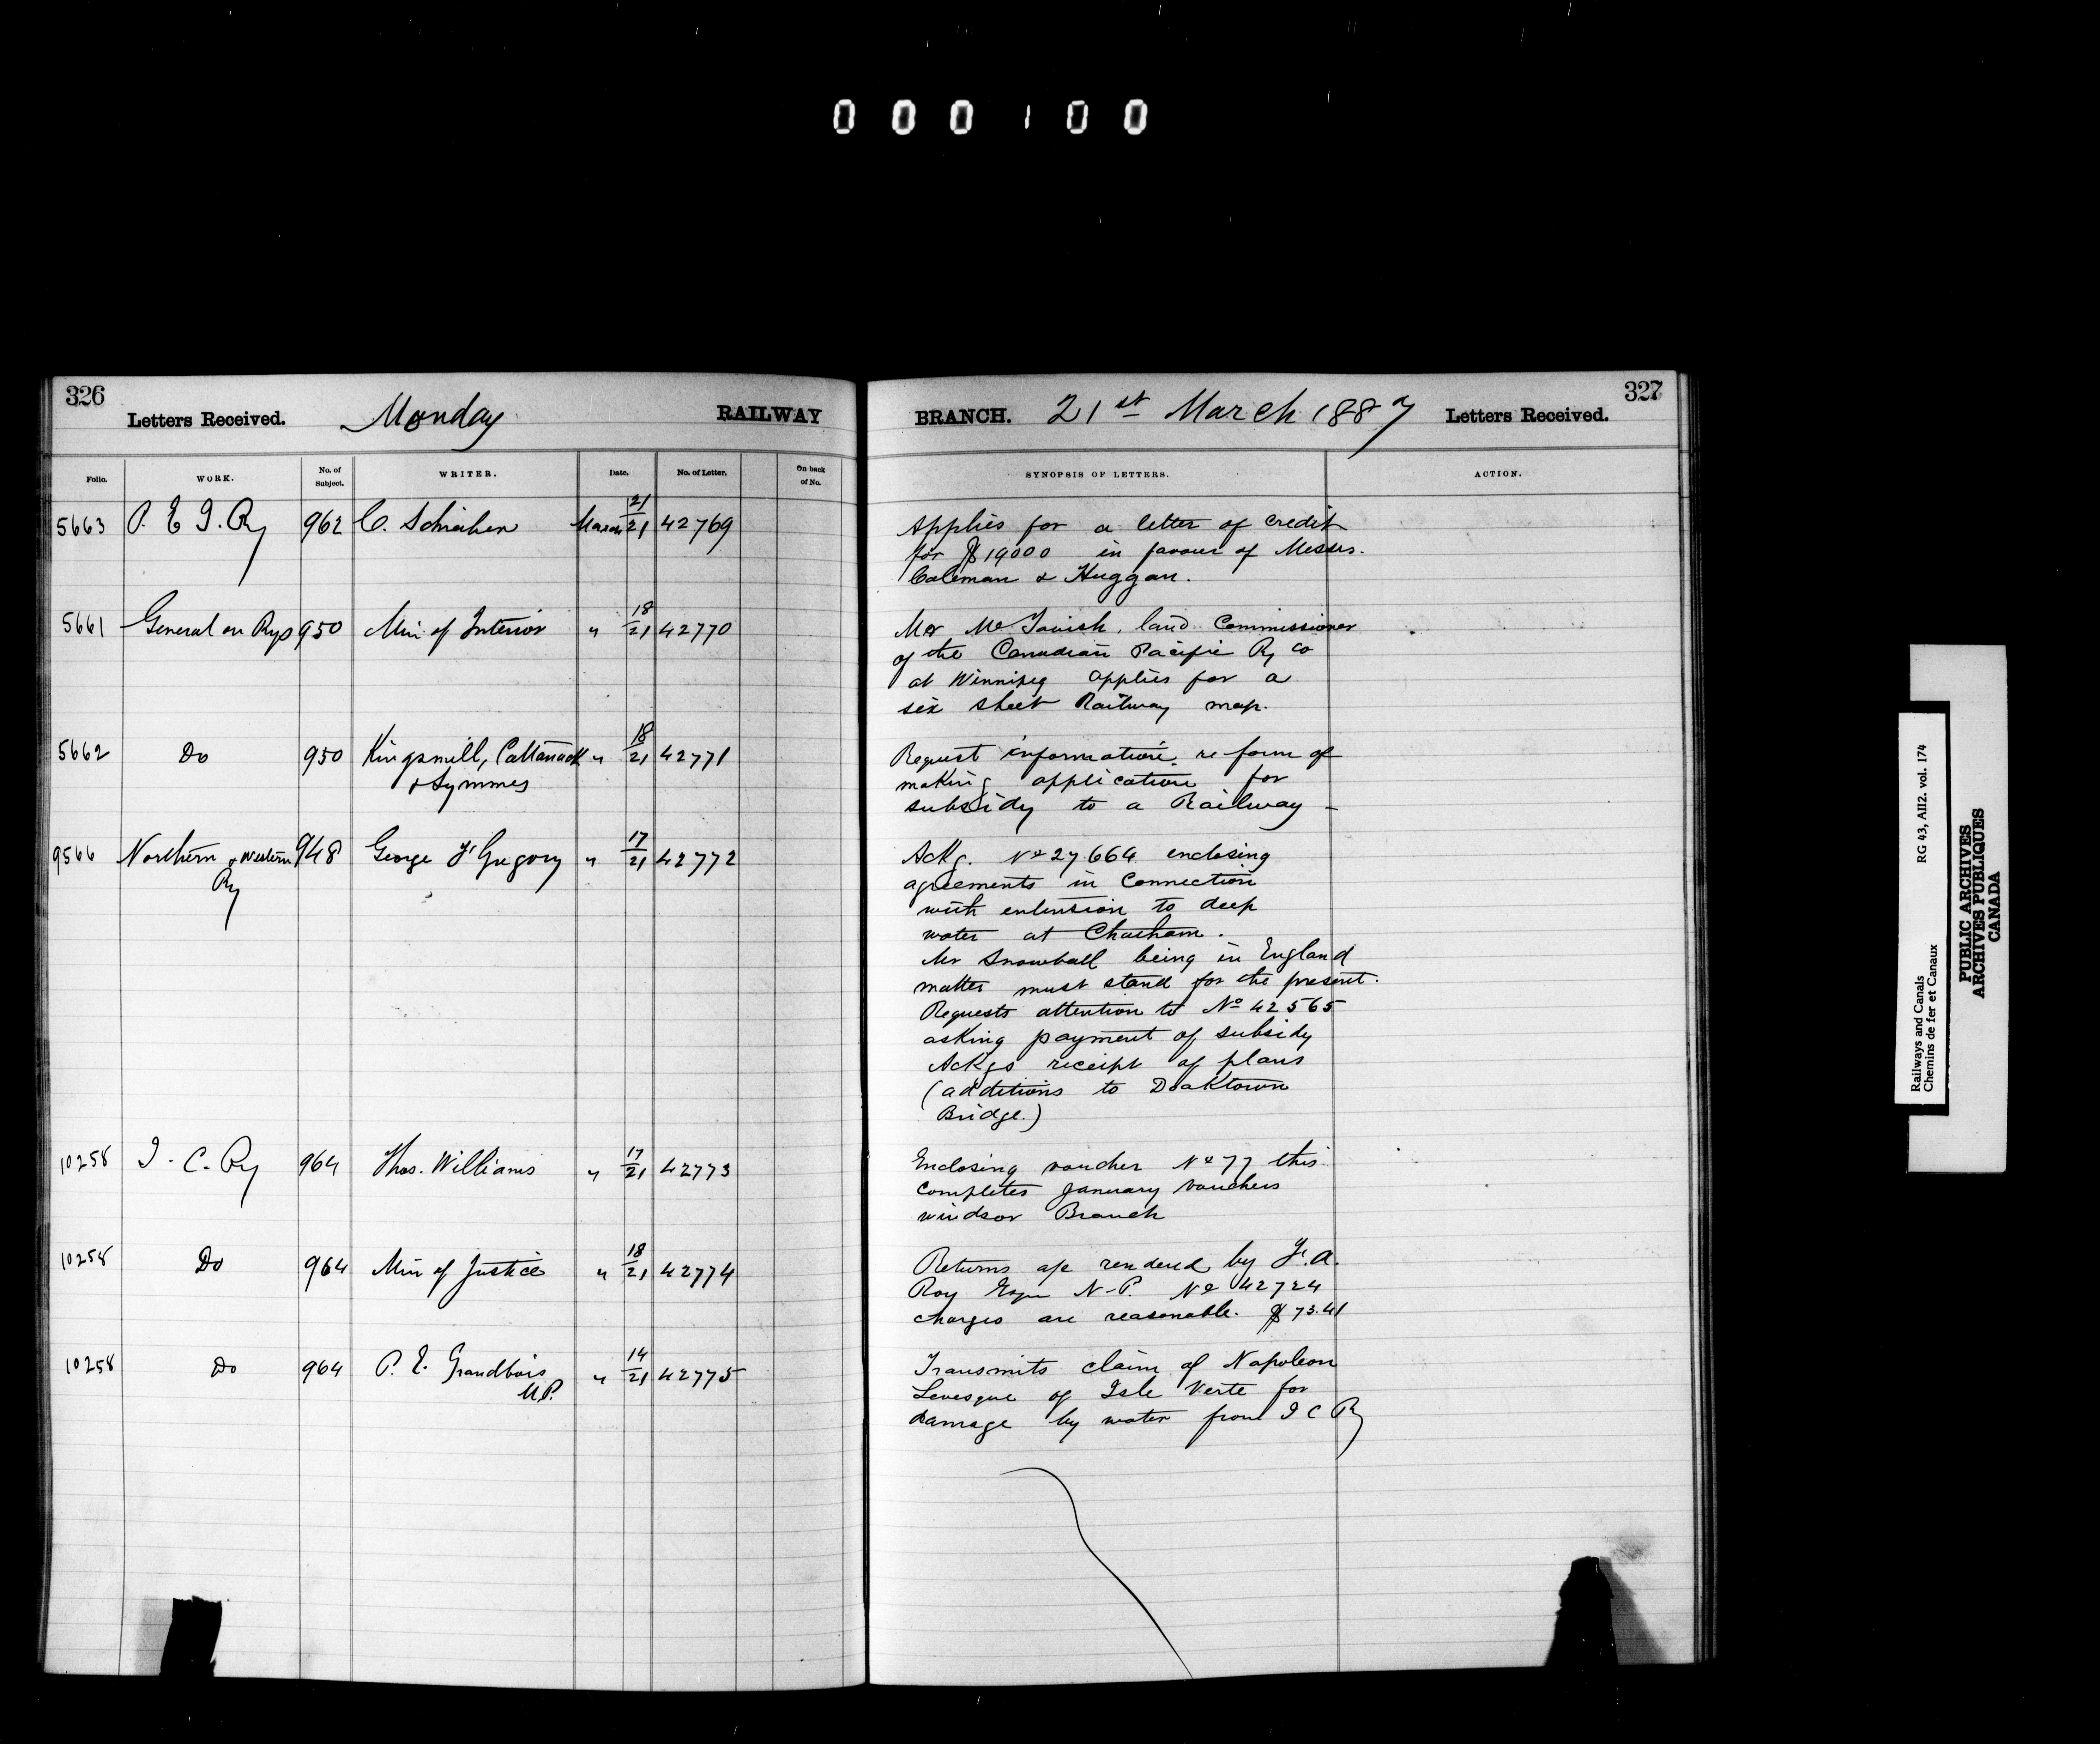 000100
326
Letters Received. Monday RAILWAY
Folio. WORK. No. of Subject. WRITER. Date. No. of Letter. On back of No.
5663 P. E I. Ry 962 C. Schreiber March 21/21 42769
5661 General on Rys 950 Min of Interior " 18/21 42770
5662 Do 950 Kingsmill, Cattanach " 18/21 42771
& Symmes
9566 Northern & Western 948 George F Gregory " 17/21 42772
Ry
10258 I. C. Ry 964 Thos. Williams " 17/21 42773
10258 Do 964 Min of Justice " 18/21 42774
10258 Do 964 P. E. Grandbois " 14/21 42775
M.P.
327
BRANCH. 21st March 1887 Letters Received.
SYNOPSIS OF LETTERS. ACTION.
Applies for a letter of credit
for $19000 in favour of Messrs.
Coleman & Huggan.
Mr McTavish, land Commissioner
of the Canadian Pacific Ry Co
at Winnipeg applies for a
six sheet Railway map.
Request information re form of
making application for
subsidy to a Railway –
Ackg. No 27664 enclosing
agreements in Connection
with extension to deep
water at Chatham.
Mr Snowball being in England
matter must stand for the present.
Requests attention to No 42565
asking payment of subsidy
Ackgs receipt of plans
(additions to Doaktown
Bridge.)
Enclosing voucher No 77 this
completes January vouchers
Windsor Branch
Returns a/c rendered by
Roy Esqr N.P. No 42724
charges are reasonable. $73.41
Transmits claim of Napoleon
Levesque of Isle Verte for
damage by water from I C Ry
Railways and Canals RG 43, AII2. vol. 174
Chemins de fer et Canaux
PUBLIC ARCHIVES
ARCHIVES PUBLIQUES
CANADA